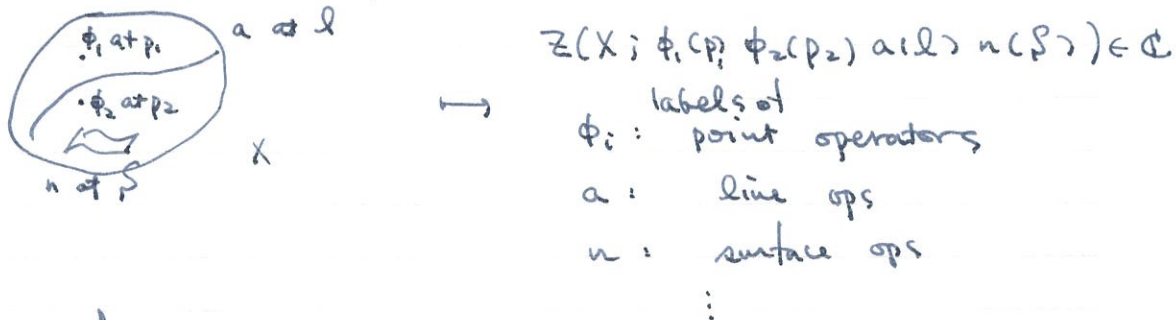 φ₁ at p₁
a at l
φ₂ at p₂
X
n at S
↦ Z(X; φ₁(p₁) φ₂(p₂) a(l) n(S)) ∈ ℂ
labels of
φᵢ : point operators
a : line ops
n : surface ops
⋮